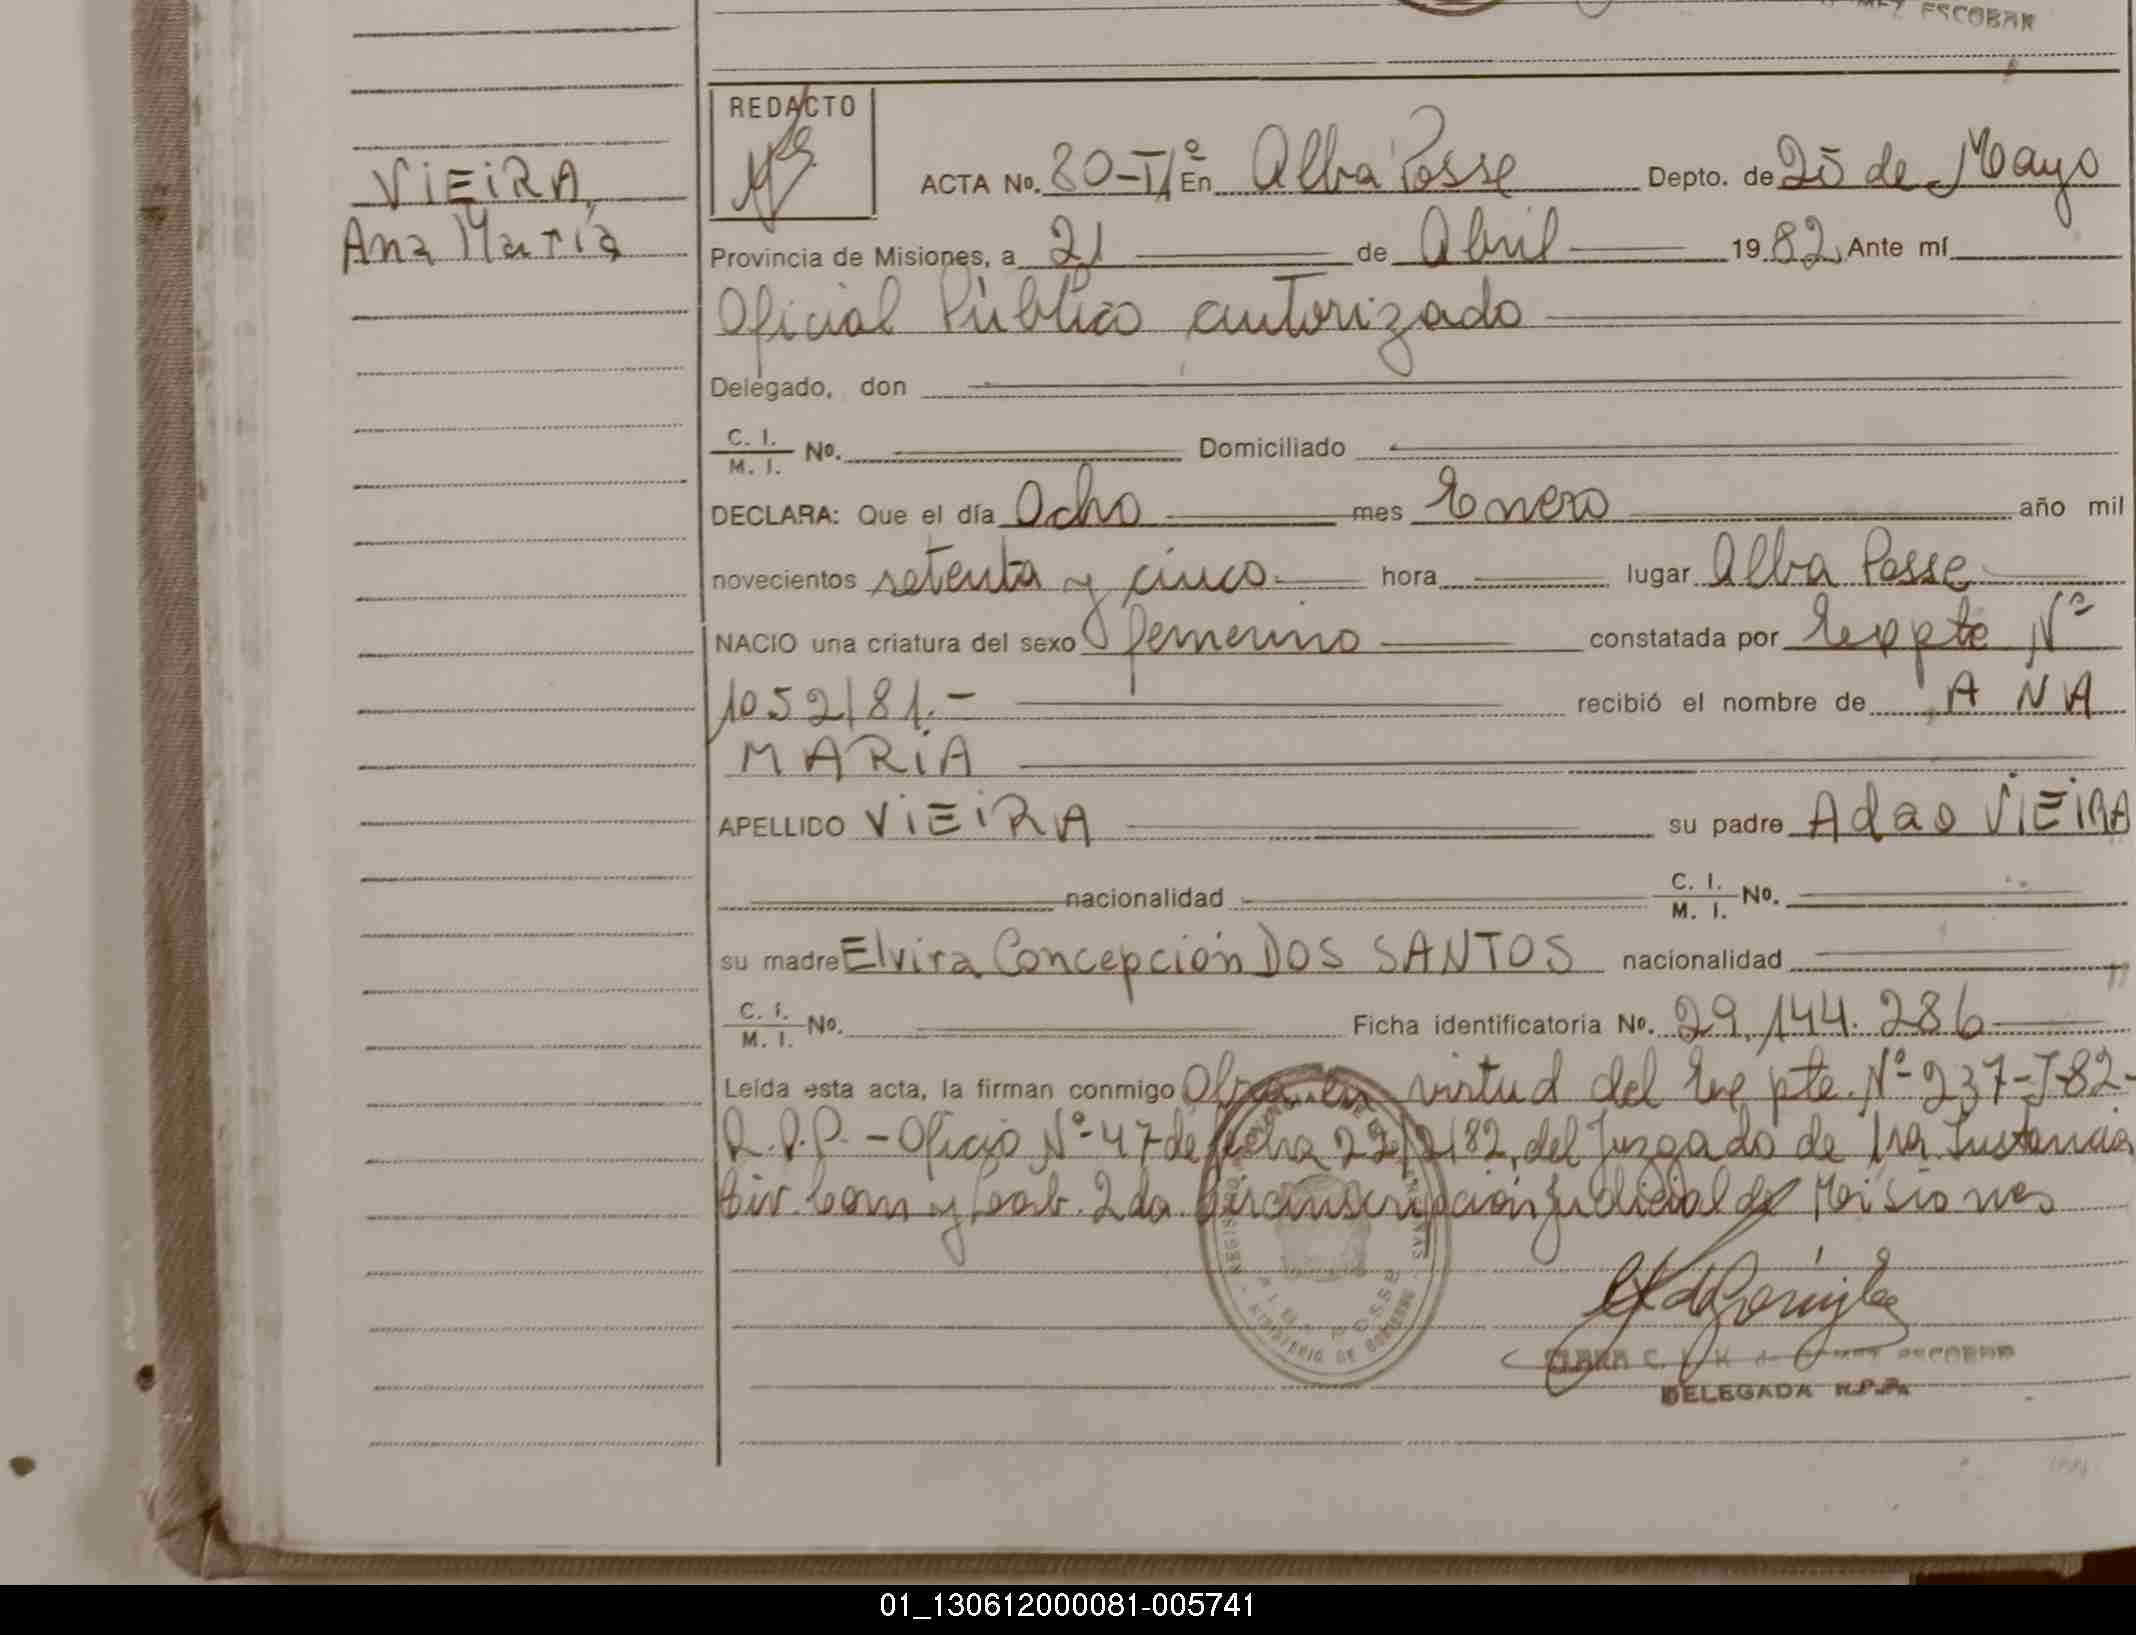 MEZ ESCOBAR
VIEIRA,
Ana María
REDACTO
ACTA No. 80-I/º En Alba Posse Depto. de 25 de Mayo
Provincia de Misiones, a 21 de Abril 1982, Ante mí
Oficial Público autorizado
Delegado, don
C. I.
M. I. No. Domiciliado
DECLARA: Que el día Ocho mes Enero año mil
novecientos setenta y cinco.- hora lugar Alba Posse
NACIO una criatura del sexo femenino constatada por Exppte Nº
1052/81.- recibió el nombre de ANA
MARíA
APELLIDO VIEIRA su padre Adao VIEIRA
nacionalidad C. I.
M. I. No.
su madre Elvira Concepción DOS SANTOS nacionalidad
C. I.
M. I. No. Ficha identificatoria No. 29.144.286
Leída esta acta, la firman conmigo en virtud del Expte. Nº 237-J-82-
R.P.P. - Oficio Nº 47 de fecha 22/2/82, del Juzgado de 1ra. Instancia
Civ. Com y Lab. 2da Circunscripción Judicial de Misiones
MINISTERIO DE GOBIERNO
CLARA C. ESCOBAR
DELEGADA R.P.P.
01_130612000081-005741